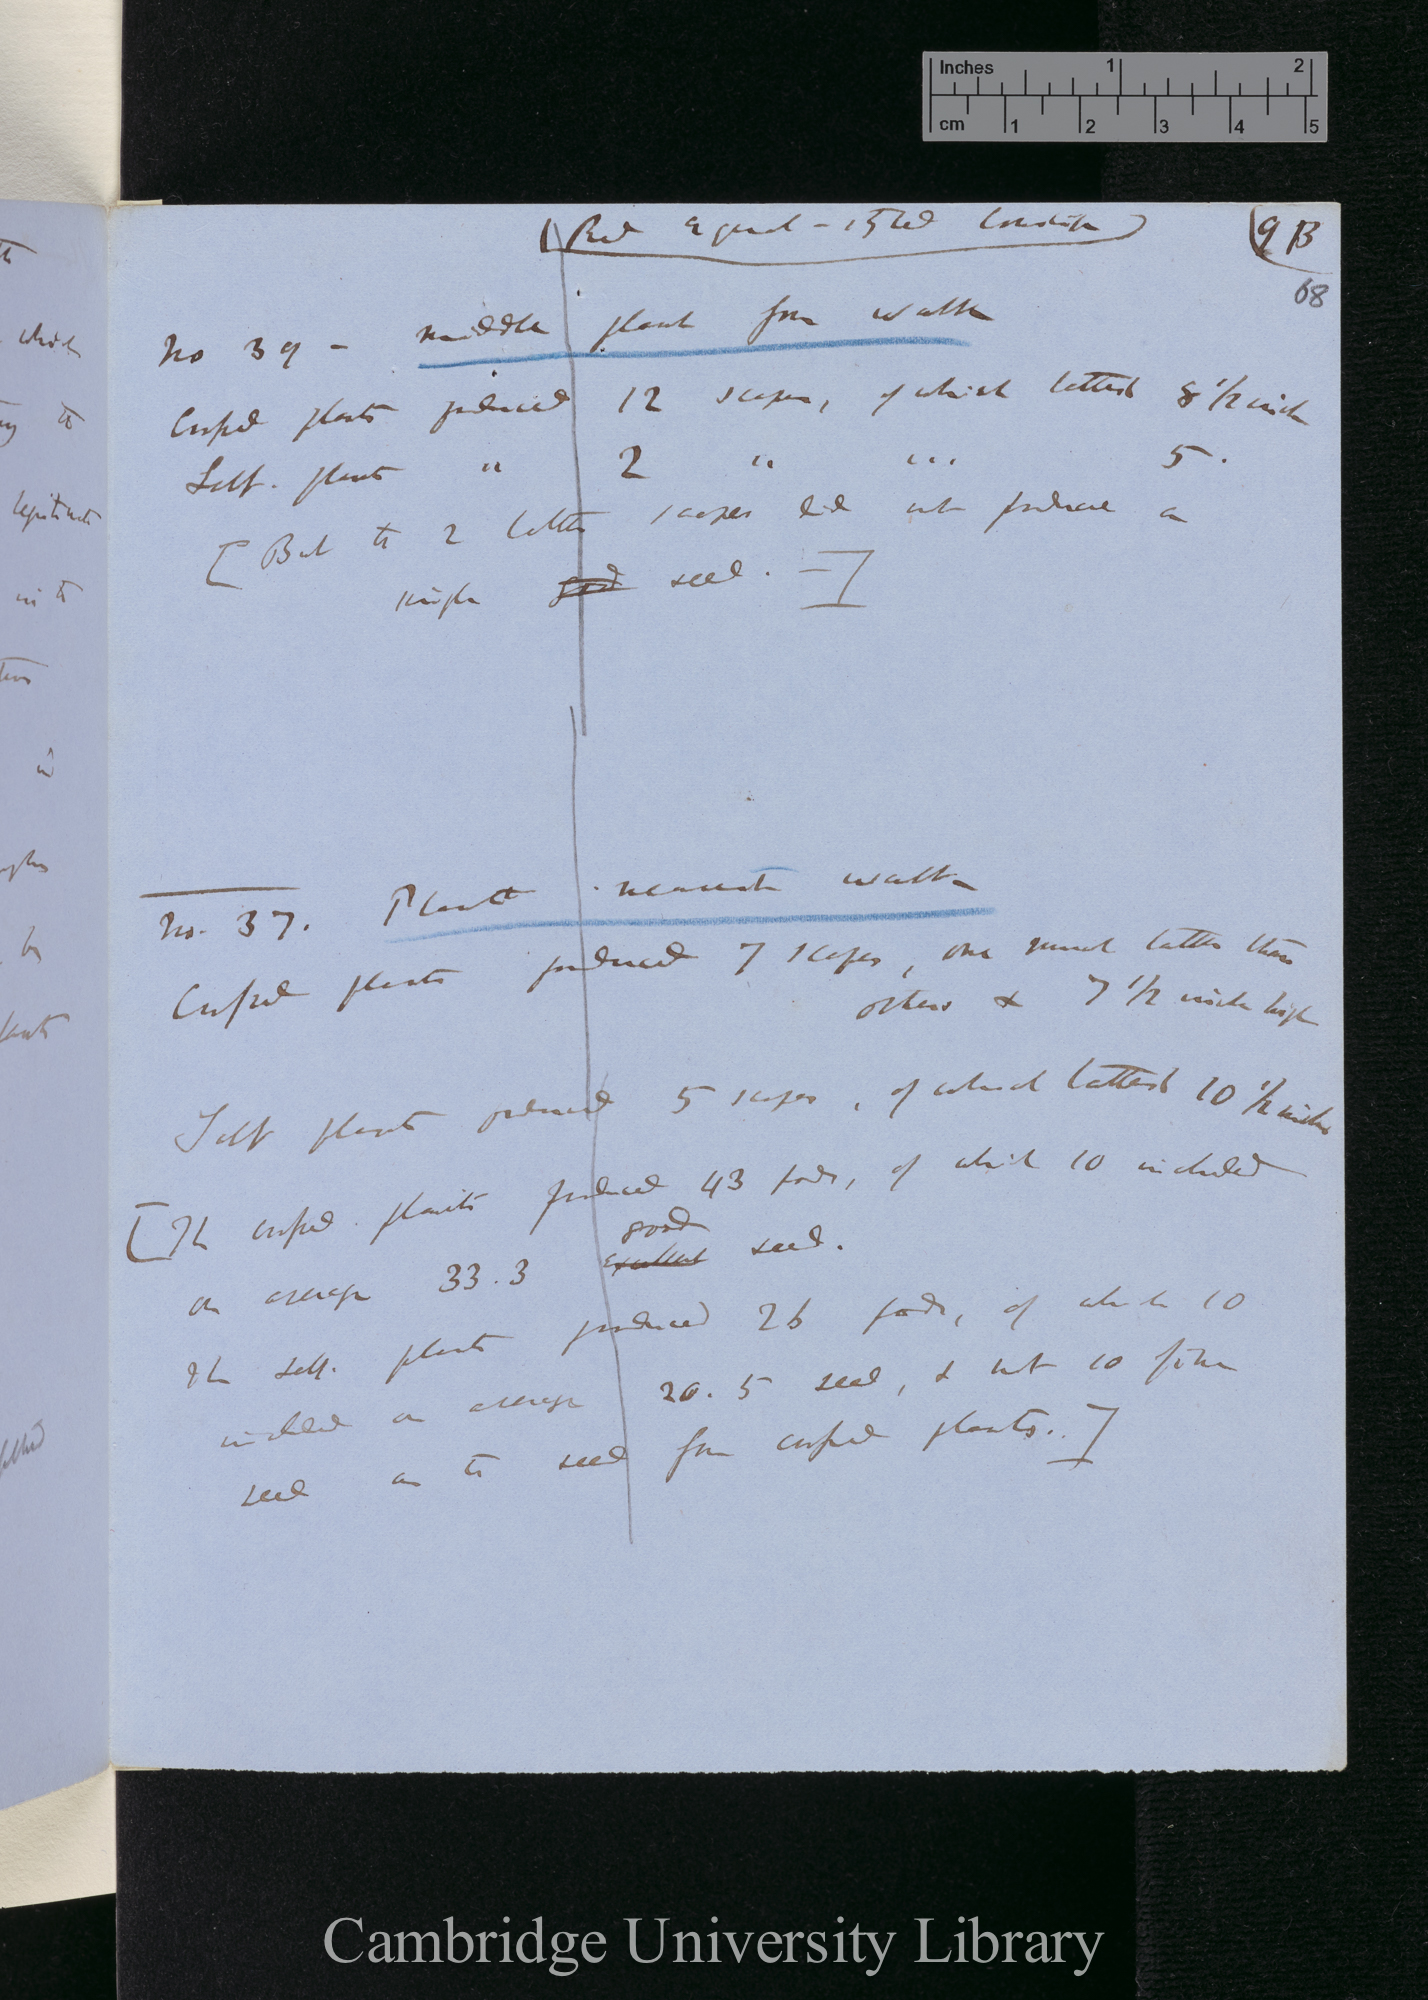 Inches 1 2
cm 1 2 3 4 5
(Red Equal-styled Cowslip)
(9 B
68
No 39 - middle plant from walk
Crossed plants produced 12 scapes, of which tallest 8 1/2 inch
Self. plants " 2 " " " 5.
[But the 2 latter scapes did not produce a
single good seed. =]
No. 37. Plant nearest walk
Crossed plants produced 7 scapes, one much taller than
others & 7 1/2 inch high
Self plants produced 5 scapes, of which tallest 10 1/2 inches
[The crossed plants produced 43 pods, of which 10 included
good
on average 33.3 excellent seed.
The self. plants produced 26 pods, of which 10
included on average 20.5 seed, & not so fine
seed as the seed from crossed plants..]
which
legitimate
in the
in
be
plants
Cambridge University Library